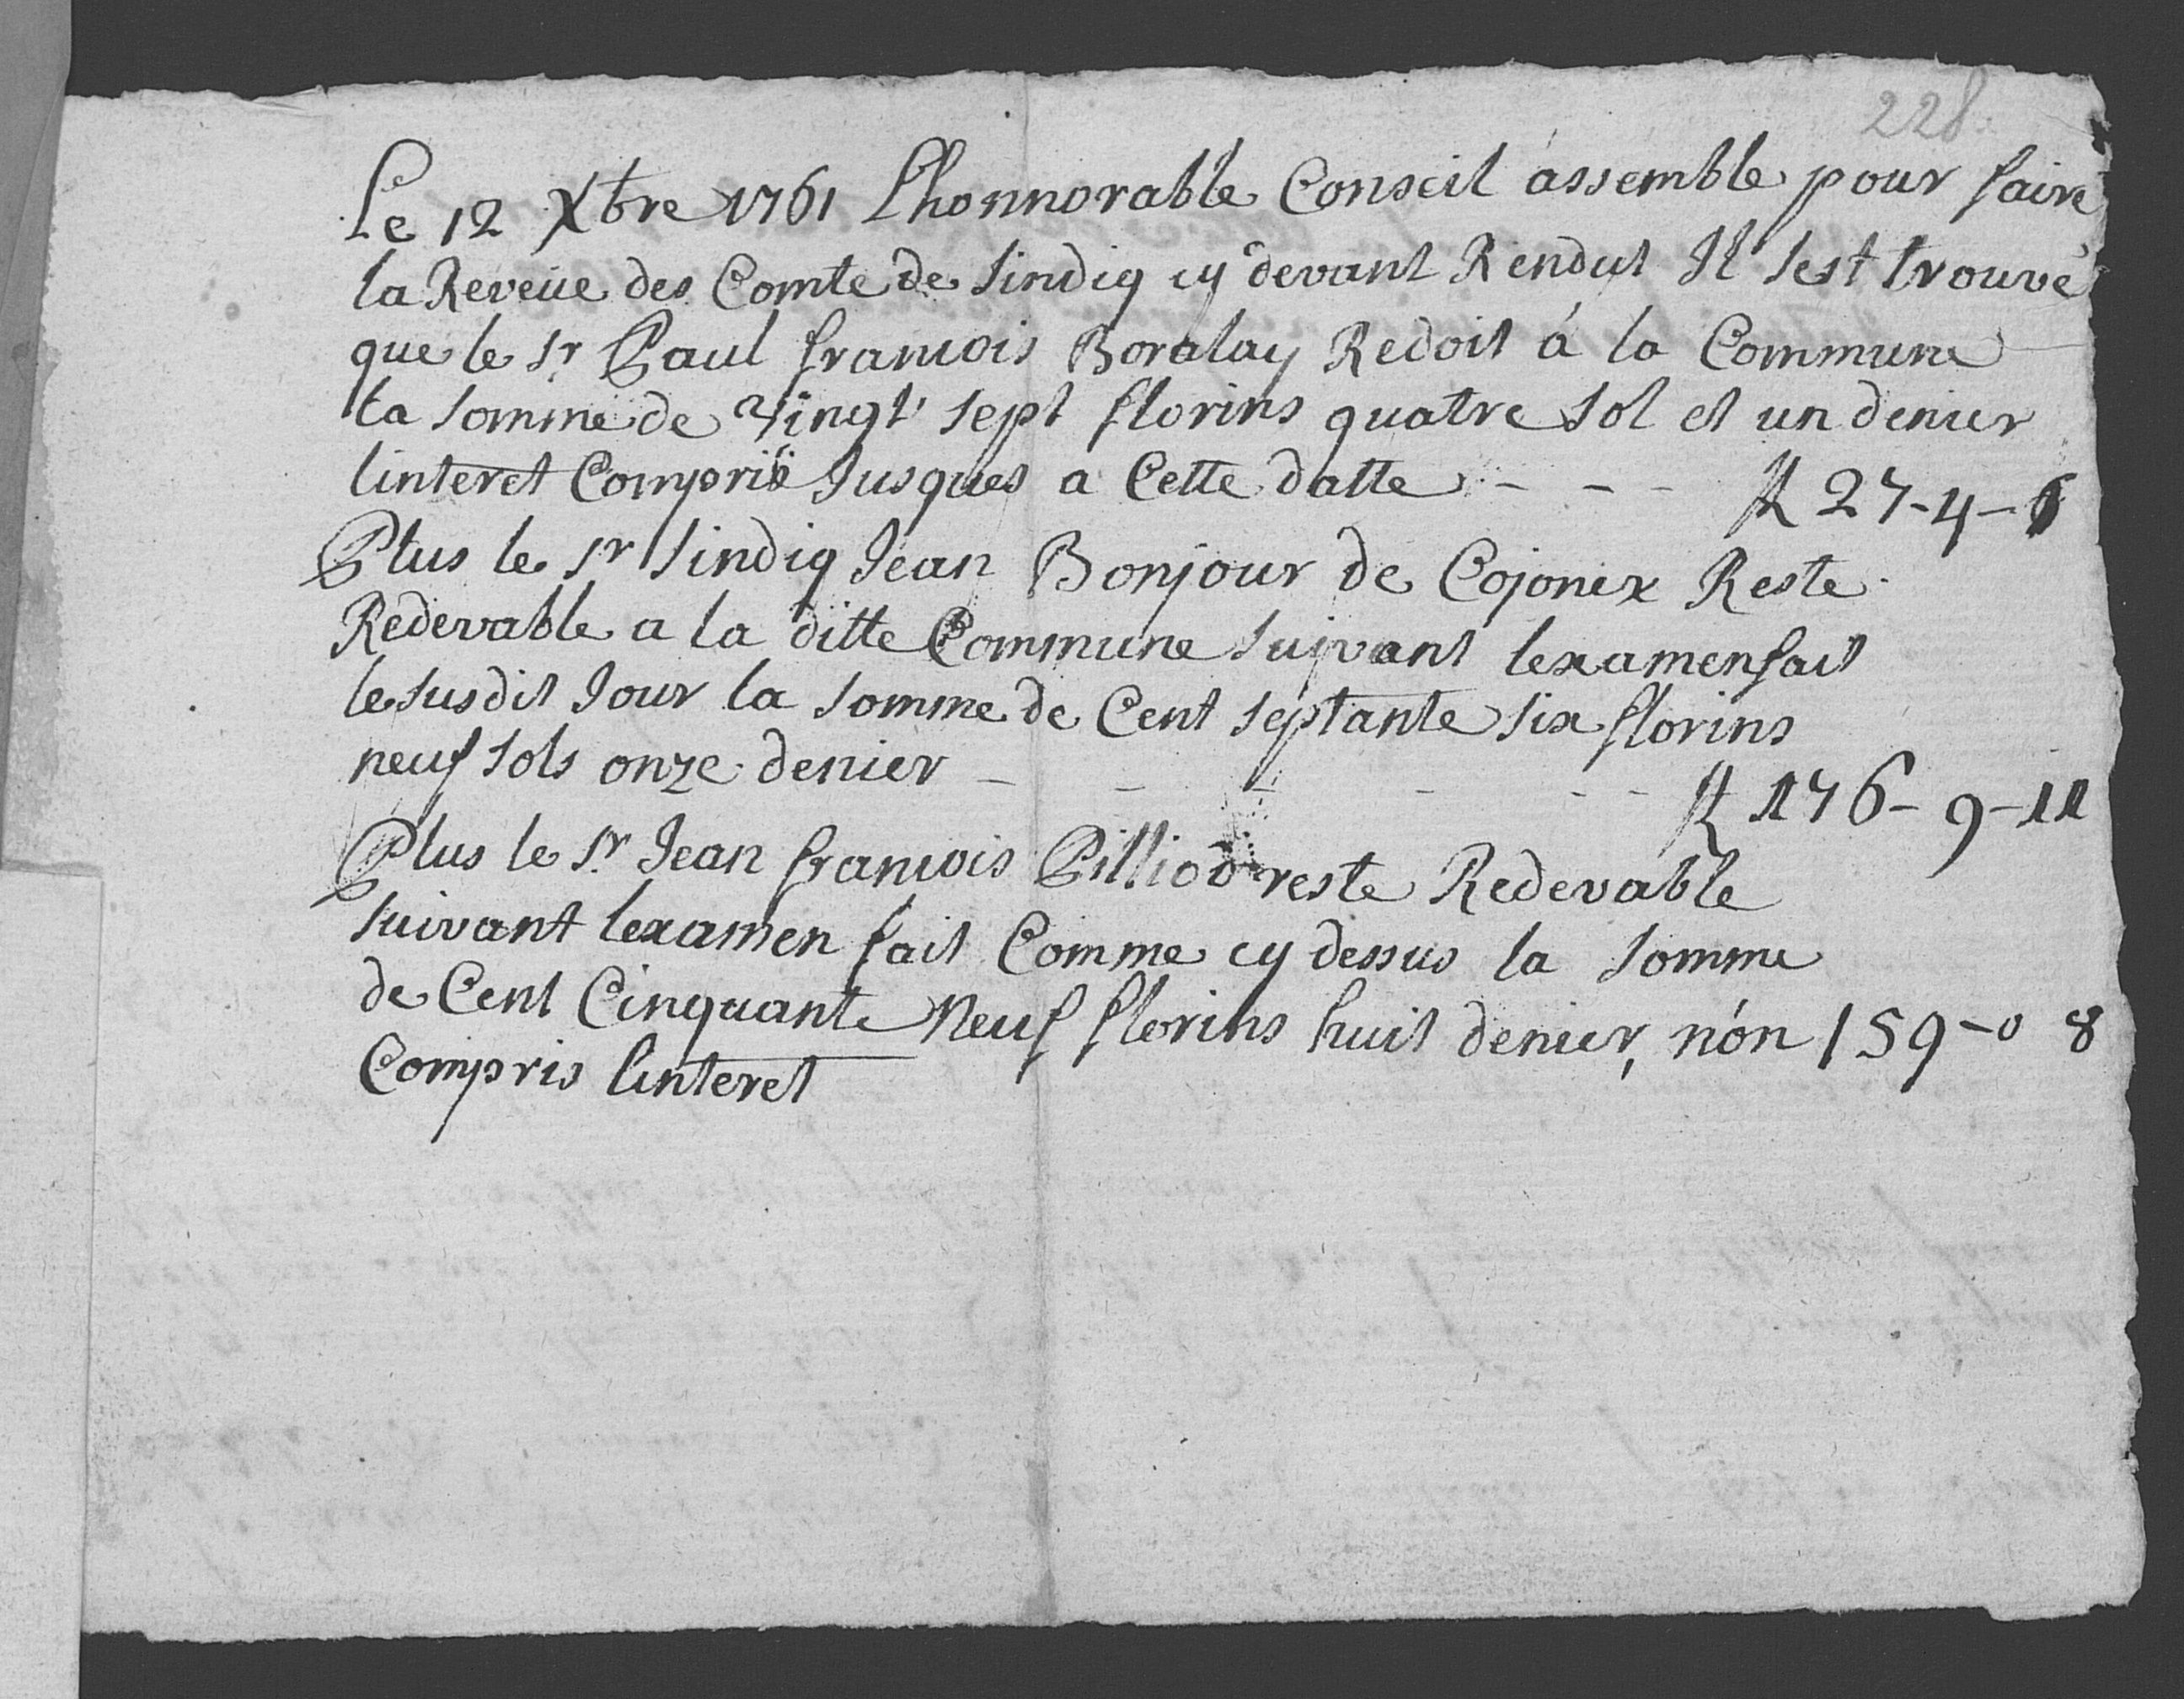 228.
Le 12 Xbre 1761 Lhonnorable Conseil assemble pour faire
la Reveüe des Comte de Sindiq cy devant Rendut Il sest trouvé
que le Sr Paul francois Boralay Redoit á la Commune
la somme de vingt sept florins quatre sol et un denier
linteret Compris Jusques a Cette datte - - - fl 27-4-1
Plus le Sr Sindiq Jean Bonjour de Cojonex Reste
Redevable a la ditte Commune suivant lexamen fait
le susdit Jour la somme de Cent septante six florins
neuf sols onze denier - - - - - - fl 176-9-11
Plus le Sr Jean francois Pilliod reste Redevable
suivant lexamen fait Comme cy dessus la somme
de Cent Cinquante Neuf florins huit denier, non 159-0 8
Compris linteret